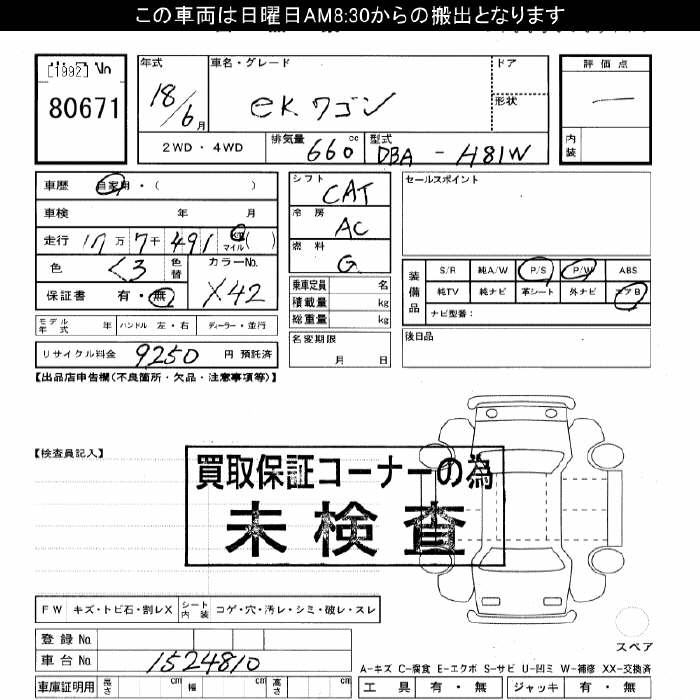 この車両は日曜日AM8:30からの搬出となります
[1992] No
80671
年式
18/6月
車名・グレード
ekワゴン
ドア
形状
評価点
—
内装
2WD・4WD
排気量 660 cc
型式 DBA - H81W
車歴 自家用・( )
車検 年 月
走行 17万7千491 km マイル( )
色 くろ 色替
カラーNo. X42
保証書 有・無
モデル年式 年 ハンドル 左・右 ディーラー・並行
リサイクル料金 9250 円 預託済
シフト CAT
冷房 AC
燃料 G
乗車定員 名
積載量 kg
総重量 kg
名変期限
月 日
セールスポイント
装備品
S/R 純A/W P/S P/W ABS
純TV 純ナビ 革シート 外ナビ エアB
ナビ型番:
後日品
【出品店申告欄(不良箇所・欠品・注意事項等)】
【検査員記入】
買取保証コーナーの為
未検査
FW キズ・トビ石・割レX シート内装 コゲ・穴・汚レ・シミ・破レ・スレ
登録No.
車台No. 1524810
車庫証明用 長さ cm 幅 cm 高さ cm
スペア
A-キズ C-腐食 E-エクボ S-サビ U-凹ミ W-補修 XX-交換済
工具 有・無 ジャッキ 有・無